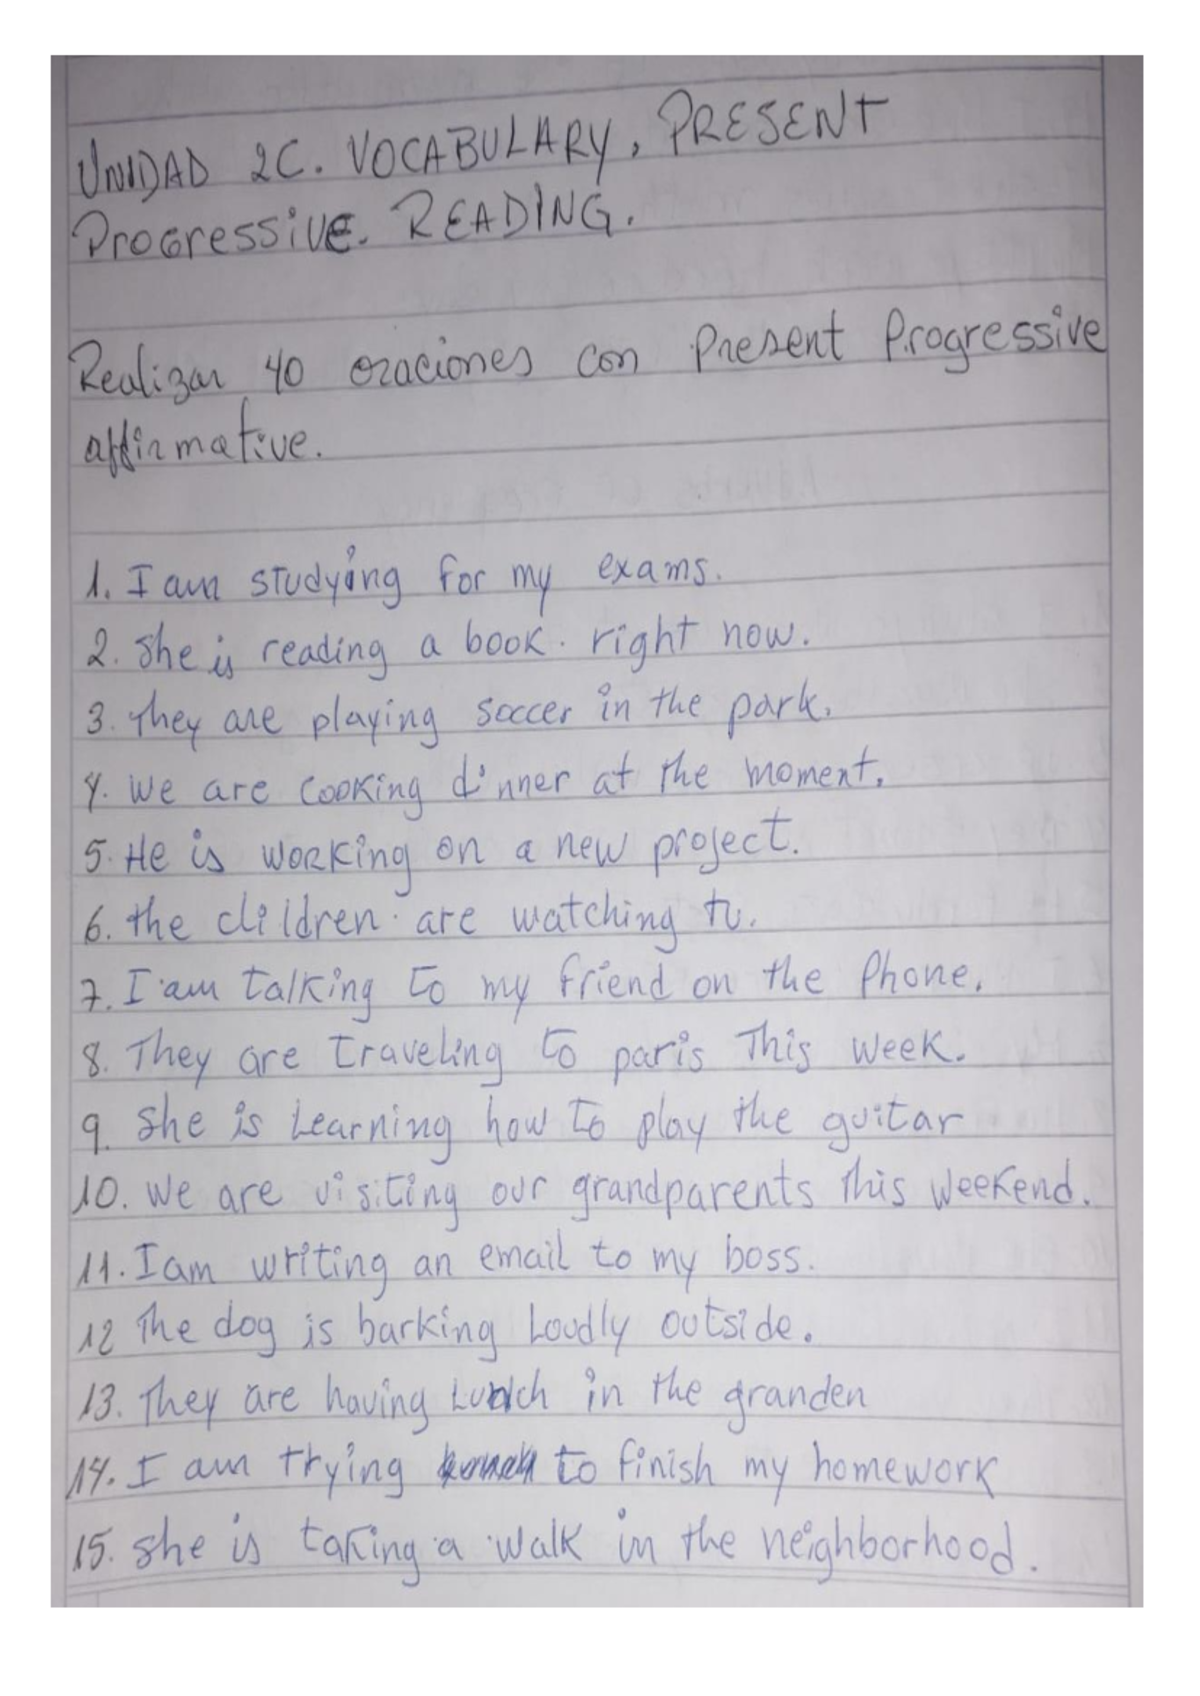 UNIDAD 2C. VOCABULARY, PRESENT
Progressive. READING.
Realizar 40 oraciones con Present Progressive
affirmative.
1. I am studying for my exams.
2. She is reading a book. right now.
3. They are playing soccer in the park.
4. We are cooking dinner at the moment.
5. He is working on a new project.
6. the clildren are watching tv.
7. I am talking to my friend on the Phone.
8. They are traveling to paris This week.
9. She is Learning how to play the guitar
10. We are visiting our grandparents this weekend.
11. I am writing an email to my boss.
12 The dog is barking Loudly outside.
13. They are having Lunch in the granden
14. I am trying to finish my homework
15. she is taking a walk in the neighborhood.